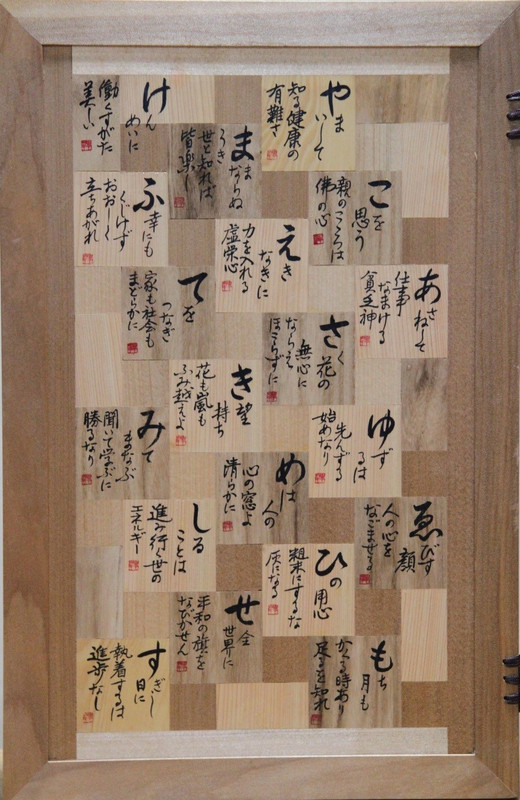 やまいして
知る健康の
有難さ
ままならぬ
うき
世と知れば
皆楽し
けんめいに
働くすがた
美しい
ふ幸にも
くじけず
おおしく
立ちあがれ
こを思う
親のこころは
佛の心
えきなきに
力を入れる
虚栄心
てをつなぎ
家も社会も
まどらかに
あさねして
仕事
なまける
貧乏神
さく花の
無心に
ならえ
ほこらずに
き望持ち
花も嵐も
ふみ越えよ
ゆずるは
先んずる
始めなり
めは人の
心の窓よ
清らかに
みてまなぶ
聞いて学ぶに
勝るなり
しることは
進み行く世の
エネルギー
ゑびす顔
人の心を
なごませる
ひの用心
粗末にするな
灰になる
もち月も
かくる時あり
足るを知れ
せ全世界に
平和の旗を
なびかせん
すぎし日に
執着するは
進歩なし